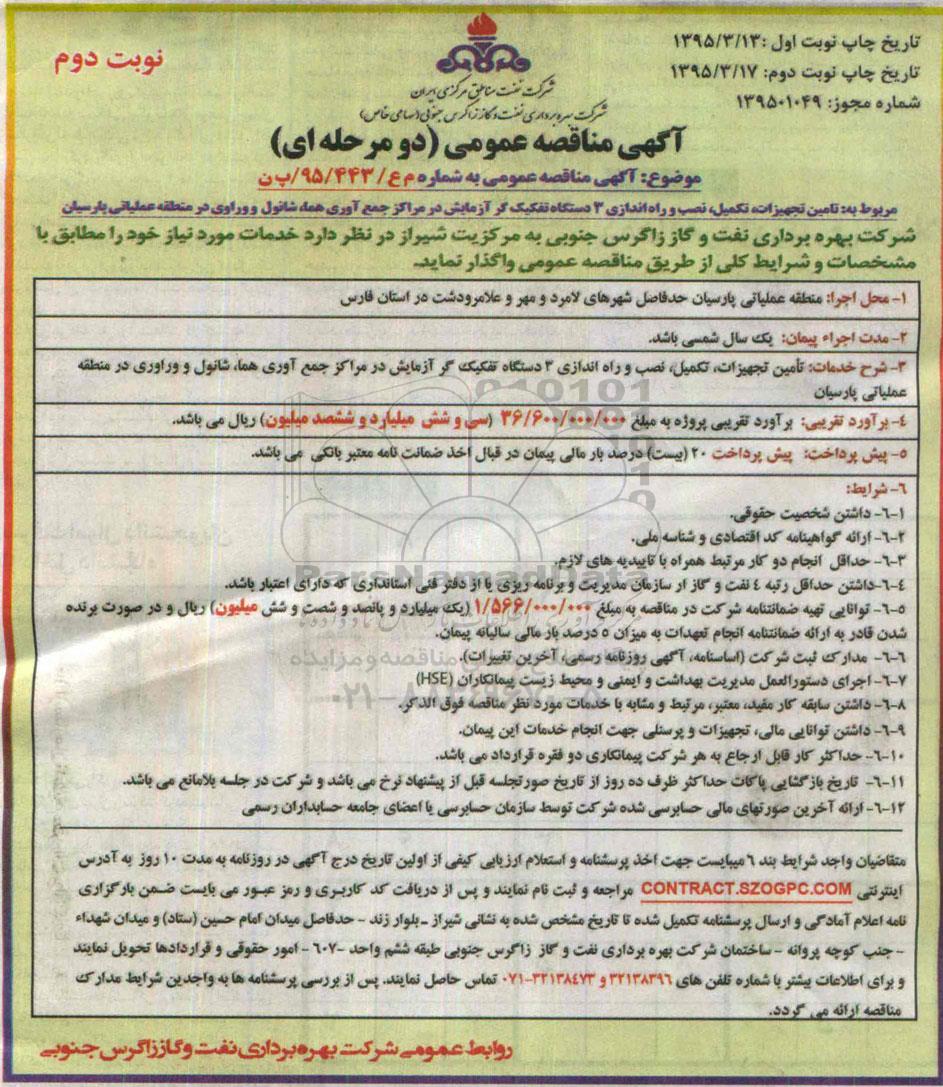 تاریخ چاپ نوبت اول :۱۳۹۵/۳/۱۳
تاریخ چاپ نوبت دوم: ۱۳۹۵/۳/۱۷
شماره مجوز: ۱۳۹۵۰۱۰۴۹
نوبت دوم
شرکت نفت مناطق مرکزی ایران
شرکت بهره برداری نفت و گاز زاگرس جنوبی (سهامی خاص)
آگهی مناقصه عمومی (دو مرحله ای)
موضوع: آگهی مناقصه عمومی به شماره م ع/ ۹۵/۴۴۳/پ ن
مربوط به: تامین تجهیزات، تکمیل، نصب و راه اندازی ۳ دستگاه تفکیک گر آزمایش در مراکز جمع آوری هما، شانول و وراوی در منطقه عملیاتی پارسیان
شرکت بهره برداری نفت و گاز زاگرس جنوبی به مرکزیت شیراز در نظر دارد خدمات مورد نیاز خود را مطابق با
مشخصات و شرایط کلی از طریق مناقصه عمومی واگذار نماید.
۱- محل اجرا: منطقه عملیاتی پارسیان حدفاصل شهرهای لامرد و مهر و علامرودشت در استان فارس
۲- مدت اجراء پیمان: یک سال شمسی باشد.
۳- شرح خدمات: تأمین تجهیزات، تکمیل، نصب و راه اندازی ۳ دستگاه تفکیک گر آزمایش در مراکز جمع آوری هما، شانول و وراوری در منطقه
عملیاتی پارسیان
۴- برآورد تقریبی: برآورد تقریبی پروژه به مبلغ ۳۶/۶۰۰/۰۰۰/۰۰۰ (سی و شش میلیارد و ششصد میلیون) ریال می باشد.
۵- پیش پرداخت: پیش پرداخت ۲۰ (بیست) درصد بار مالی پیمان در قبال اخذ ضمانت نامه معتبر بانکی می باشد.
۶- شرایط:
۶-۱- داشتن شخصیت حقوقی.
۶-۲- ارائه گواهینامه کد اقتصادی و شناسه ملی.
۶-۳- حداقل انجام دو کار مرتبط همراه با تاییدیه های لازم.
۶-۴-داشتن حداقل رتبه ٤ نفت و گاز از سازمان مدیریت و برنامه ریزی یا از دفتر فنی استانداری که دارای اعتبار باشد.
۶-۵- توانایی تهیه ضمانتنامه شرکت در مناقصه به مبلغ ۱/۵۶۶/۰۰۰/۰۰۰ (یک میلیارد و پانصد و شصت و شش میلیون) ریال و در صورت برنده
شدن قادر به ارائه ضمانتنامه انجام تعهدات به میزان ۵ درصد بار مالی سالیانه پیمان.
۶-۶- مدارک ثبت شرکت (اساسنامه، آگهی روزنامه رسمی، آخرین تغییرات).
۶-۷- اجرای دستورالعمل مدیریت بهداشت و ایمنی و محیط زیست پیمانکاران (HSE)
۶-۸- داشتن سابقه کار مفید، معتبر، مرتبط و مشابه با خدمات مورد نظر مناقصه فوق الذکر.
۶-۹- داشتن توانایی مالی، تجهیزات و پرسنلی جهت انجام خدمات این پیمان.
۶-۱۰- حداکثر کار قابل ارجاع به هر شرکت پیمانکاری دو فقره قرارداد می باشد.
۶-۱۱- تاریخ بازگشایی پاکات حداکثر ظرف ده روز از تاریخ صورتجلسه قبل از پیشنهاد نرخ می باشد و شرکت در جلسه بلامانع می باشد.
۶-۱۲- ارائه آخرین صورتهای مالی حسابرسی شده شرکت توسط سازمان حسابرسی یا اعضای جامعه حسابداران رسمی
متقاضیان واجد شرایط بند ٦ میبایست جهت اخذ پرسشنامه و استعلام ارزیابی کیفی از اولین تاریخ درج آگهی در روزنامه به مدت ۱۰ روز به آدرس
اینترنتی CONTRACT.SZOGPC.COM مراجعه و ثبت نام نمایند و پس از دریافت کد کاربری و رمز عبور می بایست ضمن بارگزاری
نامه اعلام آمادگی و ارسال پرسشنامه تکمیل شده تا تاریخ مشخص شده به نشانی شیراز ـ بلوار زند - حدفاصل میدان امام حسین (ستاد) و میدان شهداء
- جنب کوچه پروانه - ساختمان شرکت بهره برداری نفت و گاز زاگرس جنوبی طبقه ششم واحد -۶۰۷ - امور حقوقی و قراردادها تحویل نمایند
و برای اطلاعات بیشتر با شماره تلفن های ۳۲۱۳۸۳۹٦ و ۳۲۱۳۸٤۷۳-۰۷۱ تماس حاصل نمایند. پس از بررسی پرسشنامه ها به واجدین شرایط مدارک
مناقصه ارائه می گردد.
روابط عمومی شرکت بهره برداری نفت و گاز زاگرس جنوبی
ParsNamadData